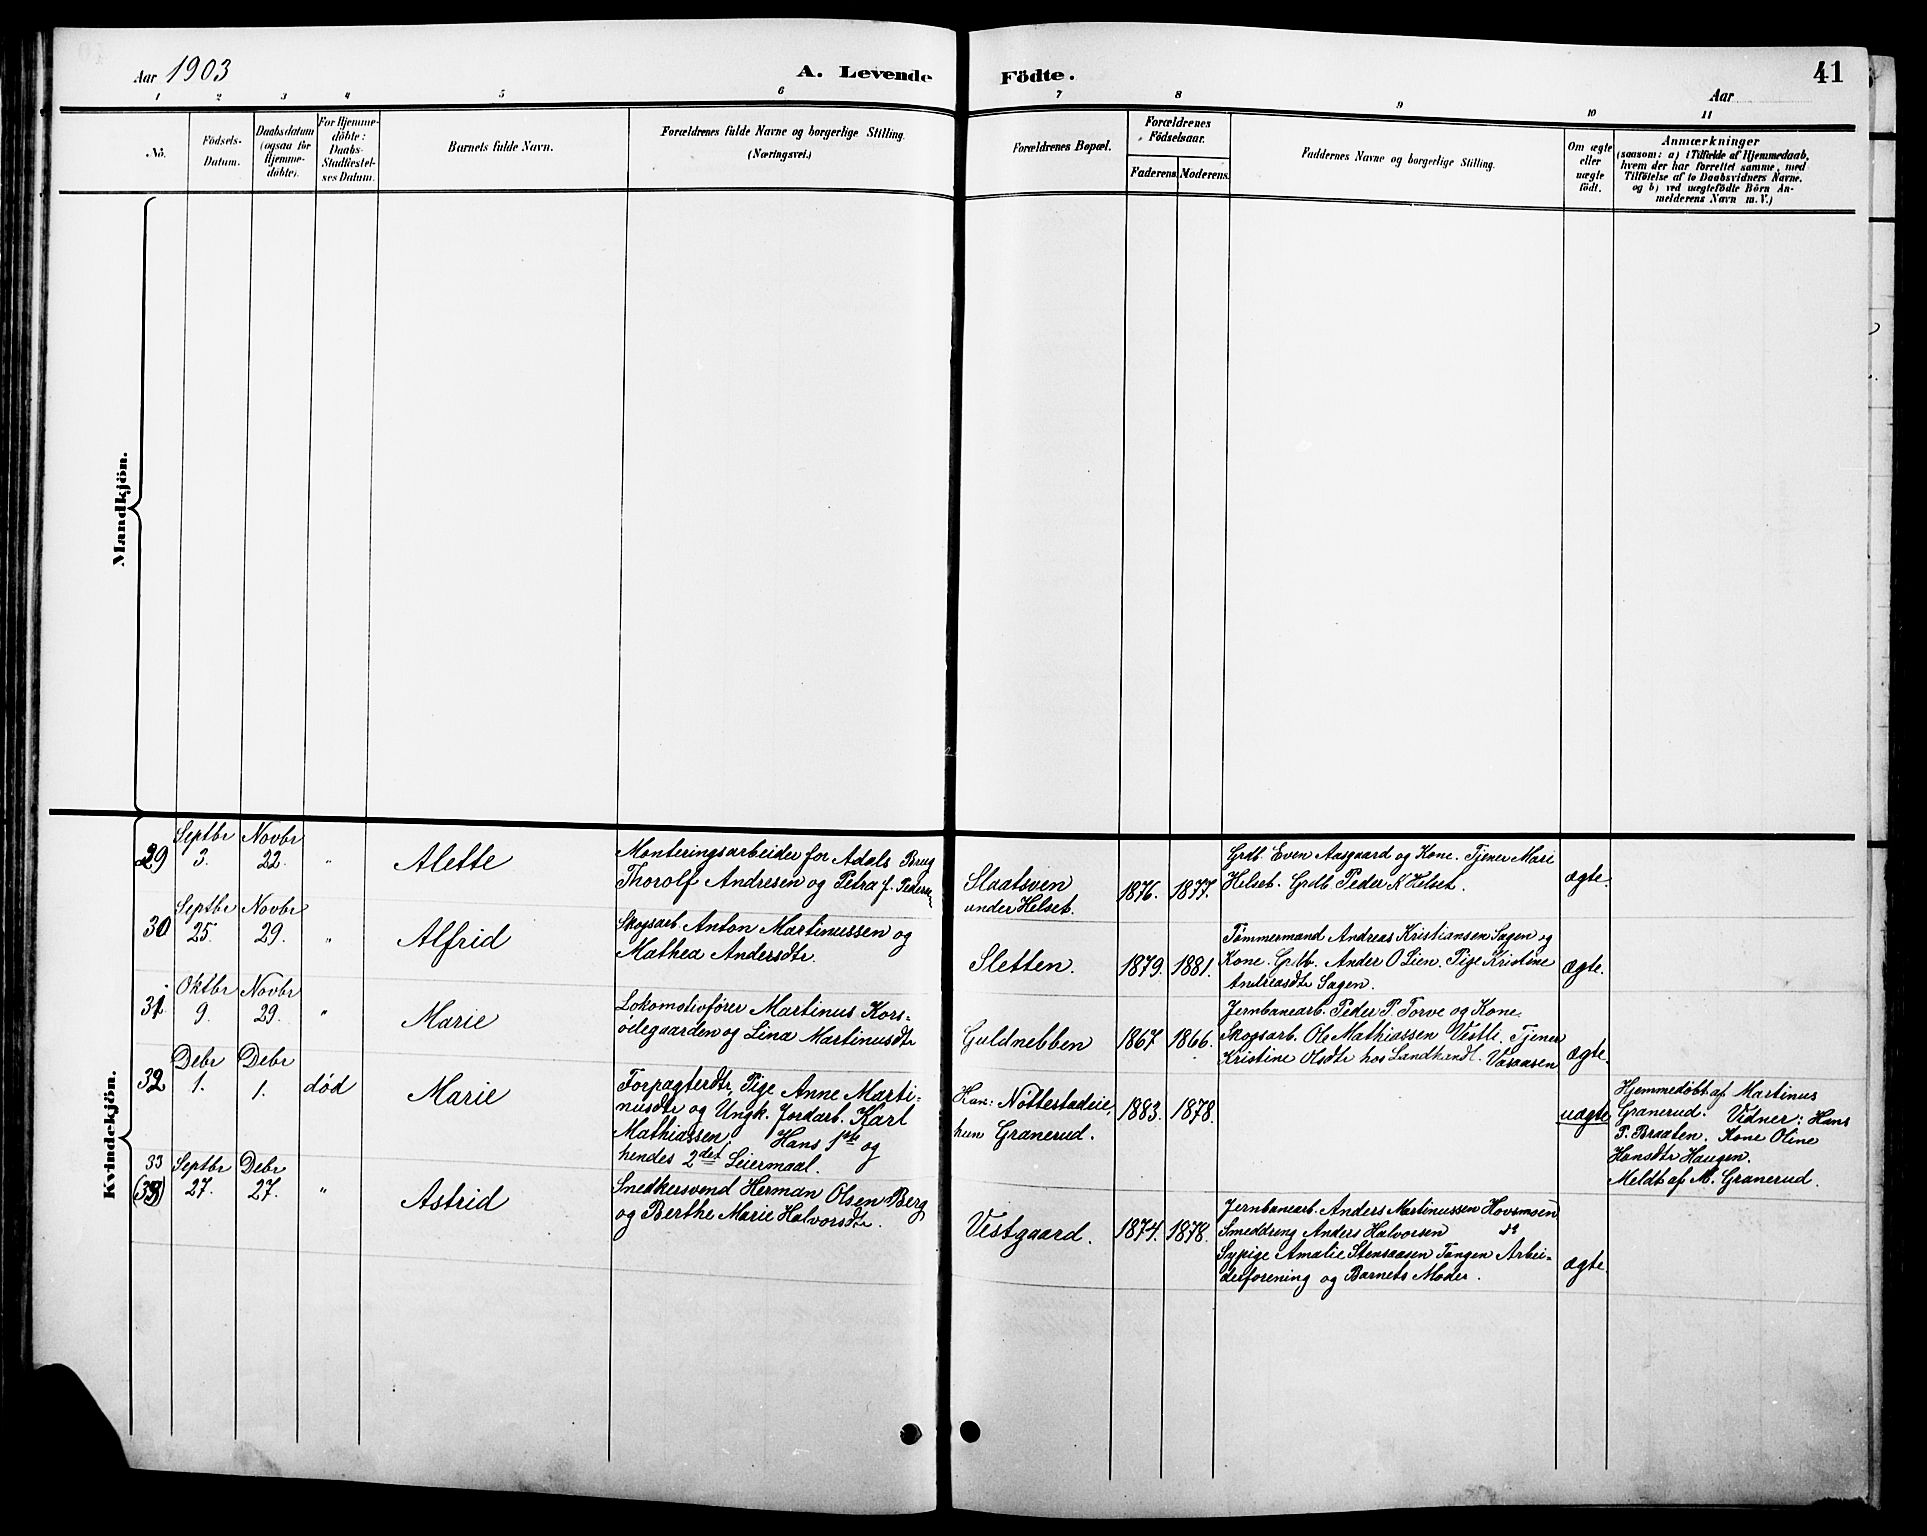 Aar 1903
A. Levende Födte.
41
Aar
1 2 3 4 5 6 7 8 9 10 11
No.
Födsels-
Datum.
Daabsdatum
(ogsaa för
Hjemme-
döbte).
For Hjemme-
döbte:
Daabs-
Stadfæstel-
ses Datum.
Barnets fulde Navn.
Forældrenes fulde Navne og borgerlige Stilling.
(Næringsvei.)
Forældrenes Bopæl.
Forældrenes
Födselsaar.
Faderens.
Moderens.
Faddernes Navne og borgerlige Stilling.
Om ægte
eller
uægte
födt.
Anmærkninger
(saasom: a) i Tilfælde af Hjemmedaab,
hvem der har forrettet samme, med
Tilföielse af to Daabsvidners Navne.
og b) ved uægtefödte Börn An-
melderens Navn m. V.)
Mandkjön.
Kvindekjön.
29
Septbr
3.
Novbr
22.
"
Alette
Monteringsarbeider for Adals Brug
Thorolf Andresen og Petra f. Pedersen
Slaatsven
under Helset.
1876.
1877.
Grdb. Even Aasgaard og Kone. Tjener Mari
Helset. Grdb. Peder K Helset.
ægte.
30
Septbr
25.
Novbr
29.
"
Alfrid
Skogsarb. Anton Martinussen og
Mathea Andersdtr.
Sletten.
1879.
1881.
Tömmermand Andreas Kristiansen Sagen og
Kone. Grdb. Ander O Lien. Pige Kristine
Andreasdtr Sagen.
ægte.
31
Oktbr
9.
Novbr
29.
"
Marie
Lokomotivfører Martinus Kors-
ödegaarden og Lina Martinusdtr
Guldnebben
1867
1866.
Jernbanearb. Peder P. Torve og Kone.
Skogsarb. Ole Mathiassen Vestli. Tjener
Kristine Olsdtr hos Landhandl. Vasaasen
ægte.
32
Debr
1.
Debr
1.
død
Marie
Forpagterdtr, Pige Anne Marti-
nusdtr og Ungk. Jordarb. Karl
Mathiassen. Hans 1ste og
hendes 2det Leiermaal.
Han: Nöttestadeie,
hun Granerud.
1883.
1878.
uægte
Hjemmedöbt af Martinus
Granerud. Vidner: Hans
P. Braaten. Kone Oline
Hansdtr Haugen.
Meldt af M. Granerud.
33
(33)
Septbr
27.
Debr
27.
"
Astrid
Snedkersvend Herman Olsen Berg
og Berthe Marie Halvorsdtr.
Vestgaard.
1874.
1878.
Jernbanearb. Anders Martinussen Hovsmoen
Smeddreng Anders Halvorsen do
Sypige Amalie Stensaasen Tangen Arbei-
derforening og Barnets Moder.
ægte.